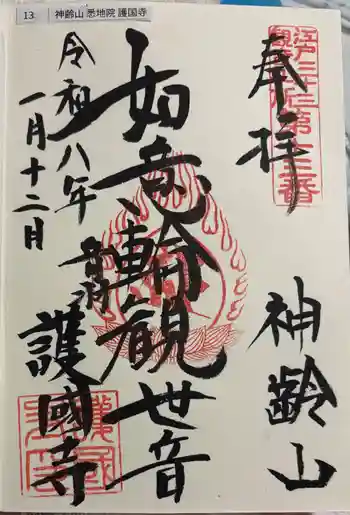 13 神齢山 悉地院 護国寺
奉拝
江戸三十三
観音札所第十三番
神齢山
如意輪観世音
音羽
護國寺
令和八年
一月十二日